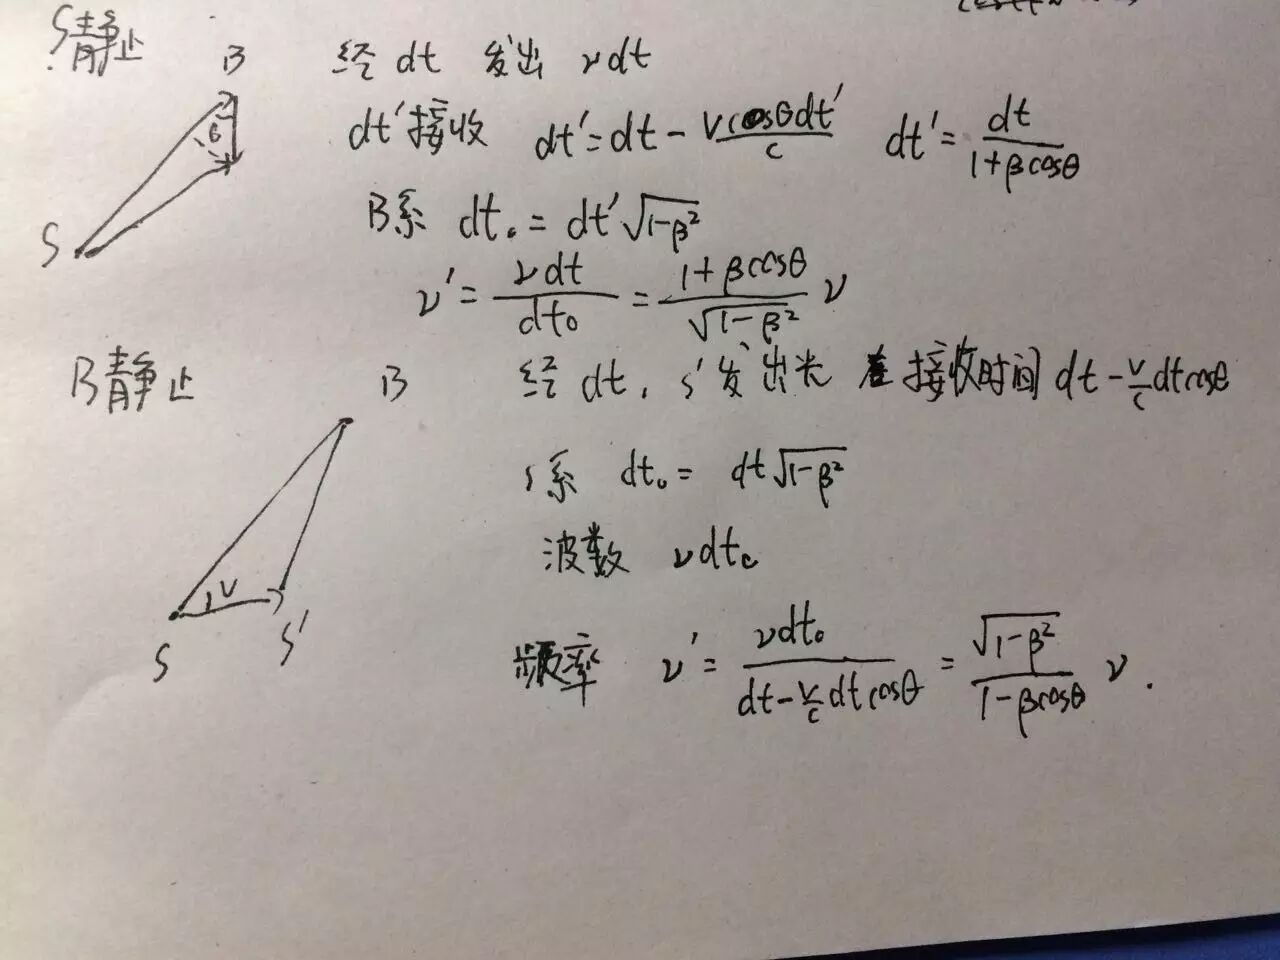 S静止 B 经dt 发出 νdt
θ dt'接收 dt'=dt-Vcosθdt'/c dt'=dt/(1+βcosθ)
S B系 dt₀=dt'√(1-β²)
ν'=νdt/dt₀=(1+βcosθ)/√(1-β²) ν
B静止 B 经dt, S'发出光 接收时间dt-v/c dtcosθ
S系 dt₀= dt√(1-β²)
波数 νdt₀
S V S' 频率 ν'=νdt₀/(dt-v/c dtcosθ)=√(1-β²)/(1-βcosθ) ν.